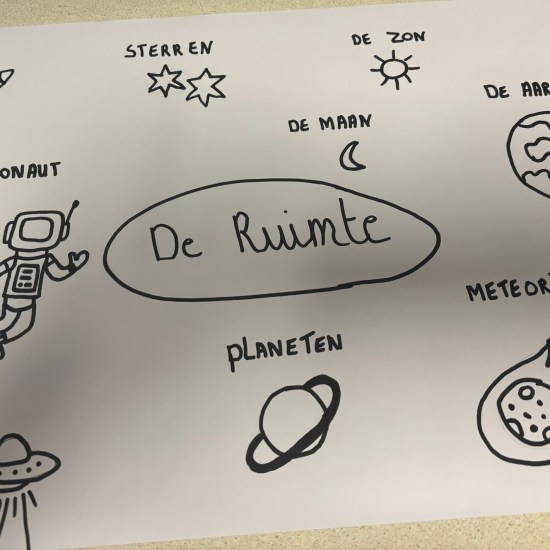 STERREN
DE ZON
DE AAR
DE MAAN
ONAUT
De Ruimte
METEOR
PLANETEN